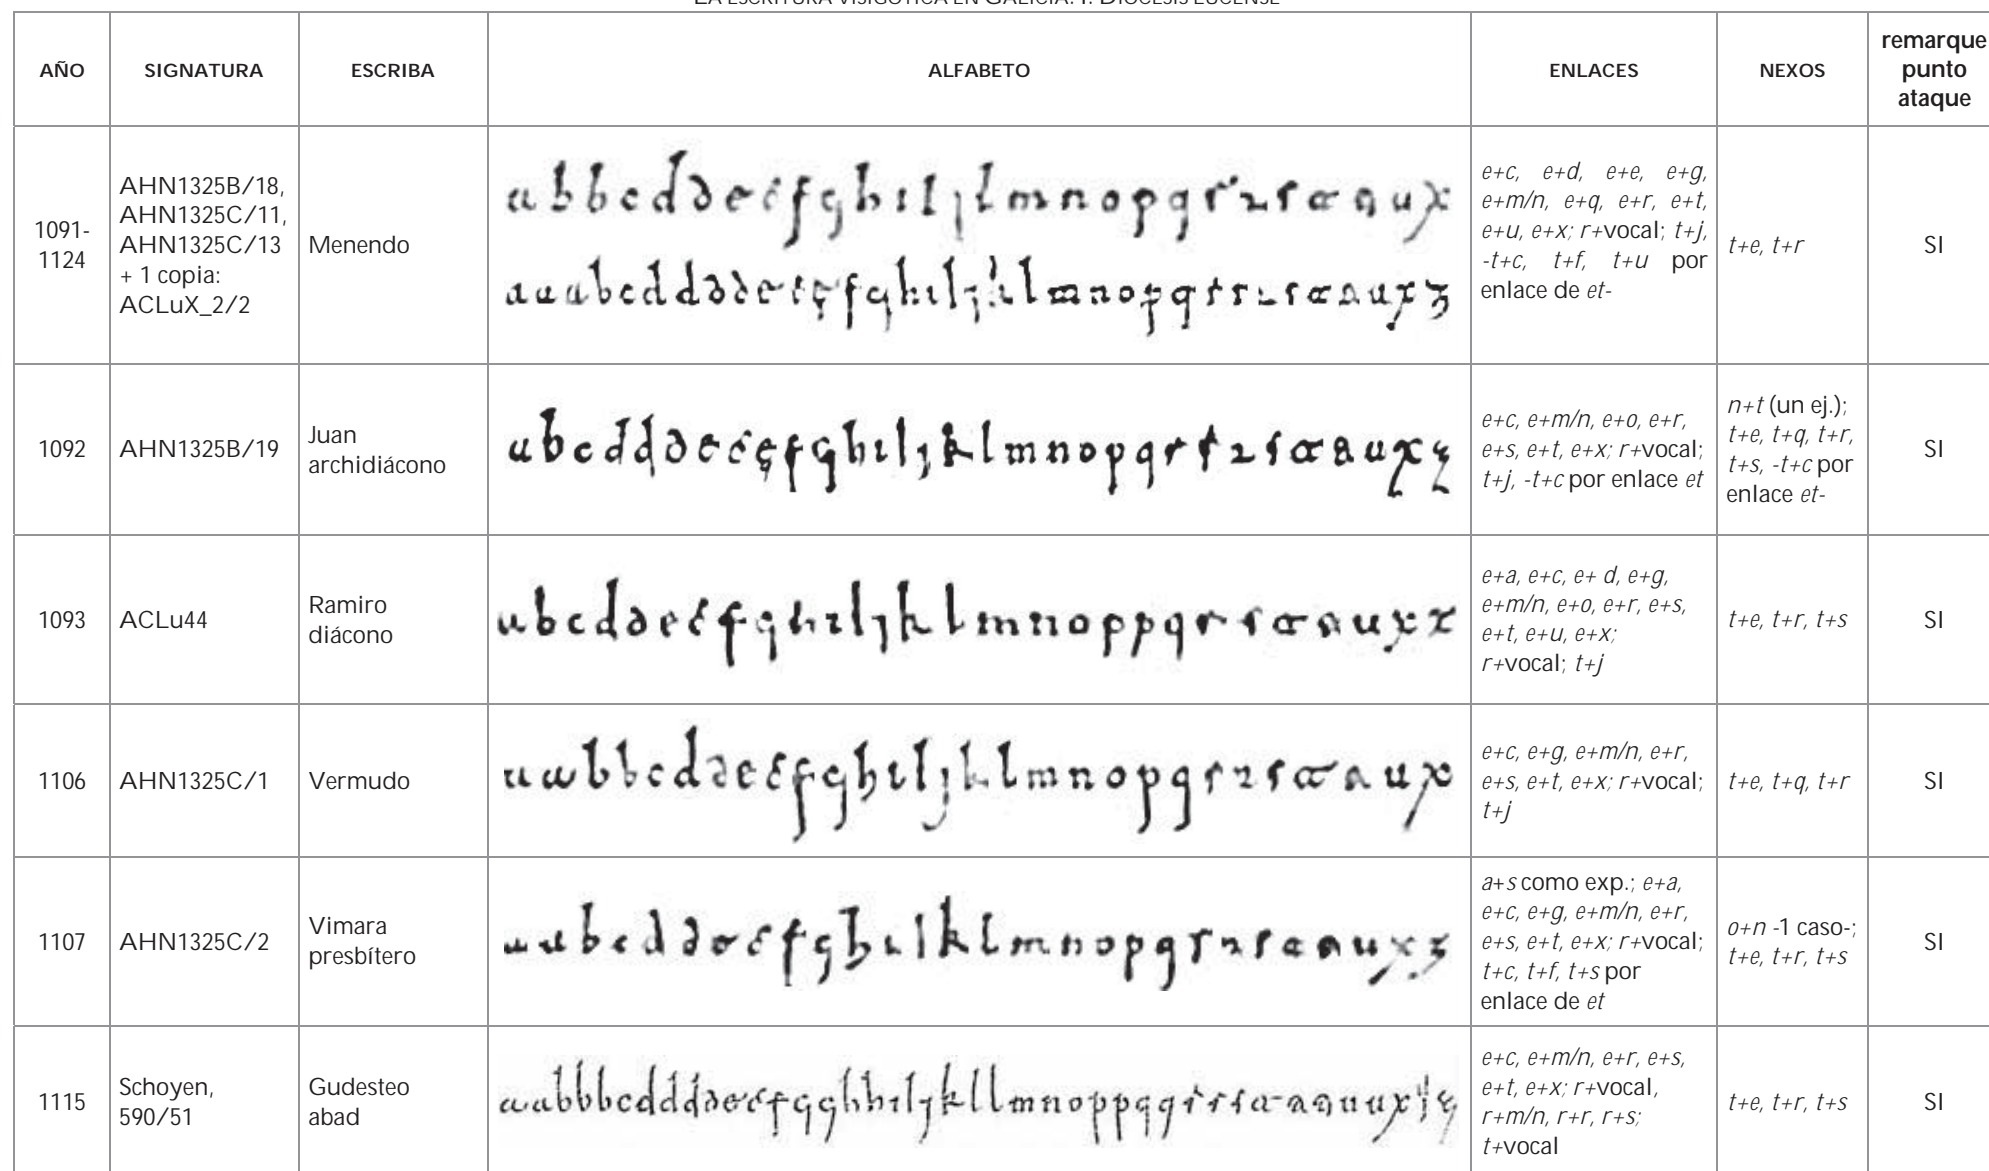 LA ESCRITURA VISIGÓTICA EN GALICIA. I. DIÓCESIS LUCENSE
AÑO SIGNATURA ESCRIBA ALFABETO ENLACES NEXOS remarque punto ataque
1091-
1124
AHN1325B/18,
AHN1325C/11,
AHN1325C/13
+ 1 copia:
ACLuX_2/2
Menendo
a b b c d d e e f g h i l j l m n o p q r r s t a u x
a a a b c d d d d e e ę f g h i l j k l m n o p q r r r s t a u x z
e+c, e+d, e+e, e+g,
e+m/n, e+q, e+r, e+t,
e+u, e+x; r+vocal; t+j,
-t+c, t+f, t+u por
enlace de et-
t+e, t+r
SI
1092
AHN1325B/19
Juan
archidiácono
a b c d d d e e ę f g h i l j k l m n o p q r r r s t a u x z
e+c, e+m/n, e+o, e+r,
e+s, e+t, e+x; r+vocal;
t+j, -t+c por enlace et
n+t (un ej.);
t+e, t+q, t+r,
t+s, -t+c por
enlace et-
SI
1093
ACLu44
Ramiro
diácono
a b c d d e e f g h i l j k l m n o p p q r s t a u x z
e+a, e+c, e+ d, e+g,
e+m/n, e+o, e+r, e+s,
e+t, e+u, e+x;
r+vocal; t+j
t+e, t+r, t+s
SI
1106
AHN1325C/1
Vermudo
a a b b c d d e e f g h i l j k l m n o p q r r s t a u x
e+c, e+g, e+m/n, e+r,
e+s, e+t, e+x; r+vocal;
t+j
t+e, t+q, t+r
SI
1107
AHN1325C/2
Vimara
presbítero
a a b c d d e e f g h i l k l m n o p q r r s t a u x z
a+s como exp.; e+a,
e+c, e+g, e+m/n, e+r,
e+s, e+t, e+x; r+vocal;
t+c, t+f, t+s por
enlace de et
o+n -1 caso-;
t+e, t+r, t+s
SI
1115
Schoyen,
590/51
Gudesteo
abad
a a b b b c d d d d e e f g g h h i l j k l l m n o p p q q r r s t a a u u x y z
e+c, e+m/n, e+r, e+s,
e+t, e+x; r+vocal,
r+m/n, r+r, r+s;
t+vocal
t+e, t+r, t+s
SI